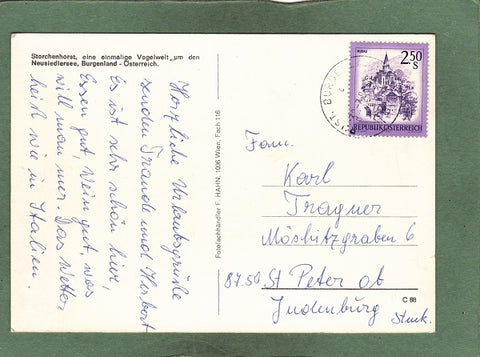 Storchenhorst, eine einmalige Vogelwelt um den
Neusiedlersee, Burgenland - Österreich.
Herzliche Urlaubsgrüße
senden Traude und Herbert
Es ist sehr schön hier,
Essen gut, Wein gut, was
will man mer. Das Wetter
heiß wie in Italien.
Fotofachhändler F. HAHN, 1006 Wien, Fach 116
MURAU
2.50
S
REPUBLIK ÖSTERREICH
Fam.
Karl
Tragner
Mösbitzgraben 6
87.50 St Peter ob
Judenburg
Stmk.
C 88